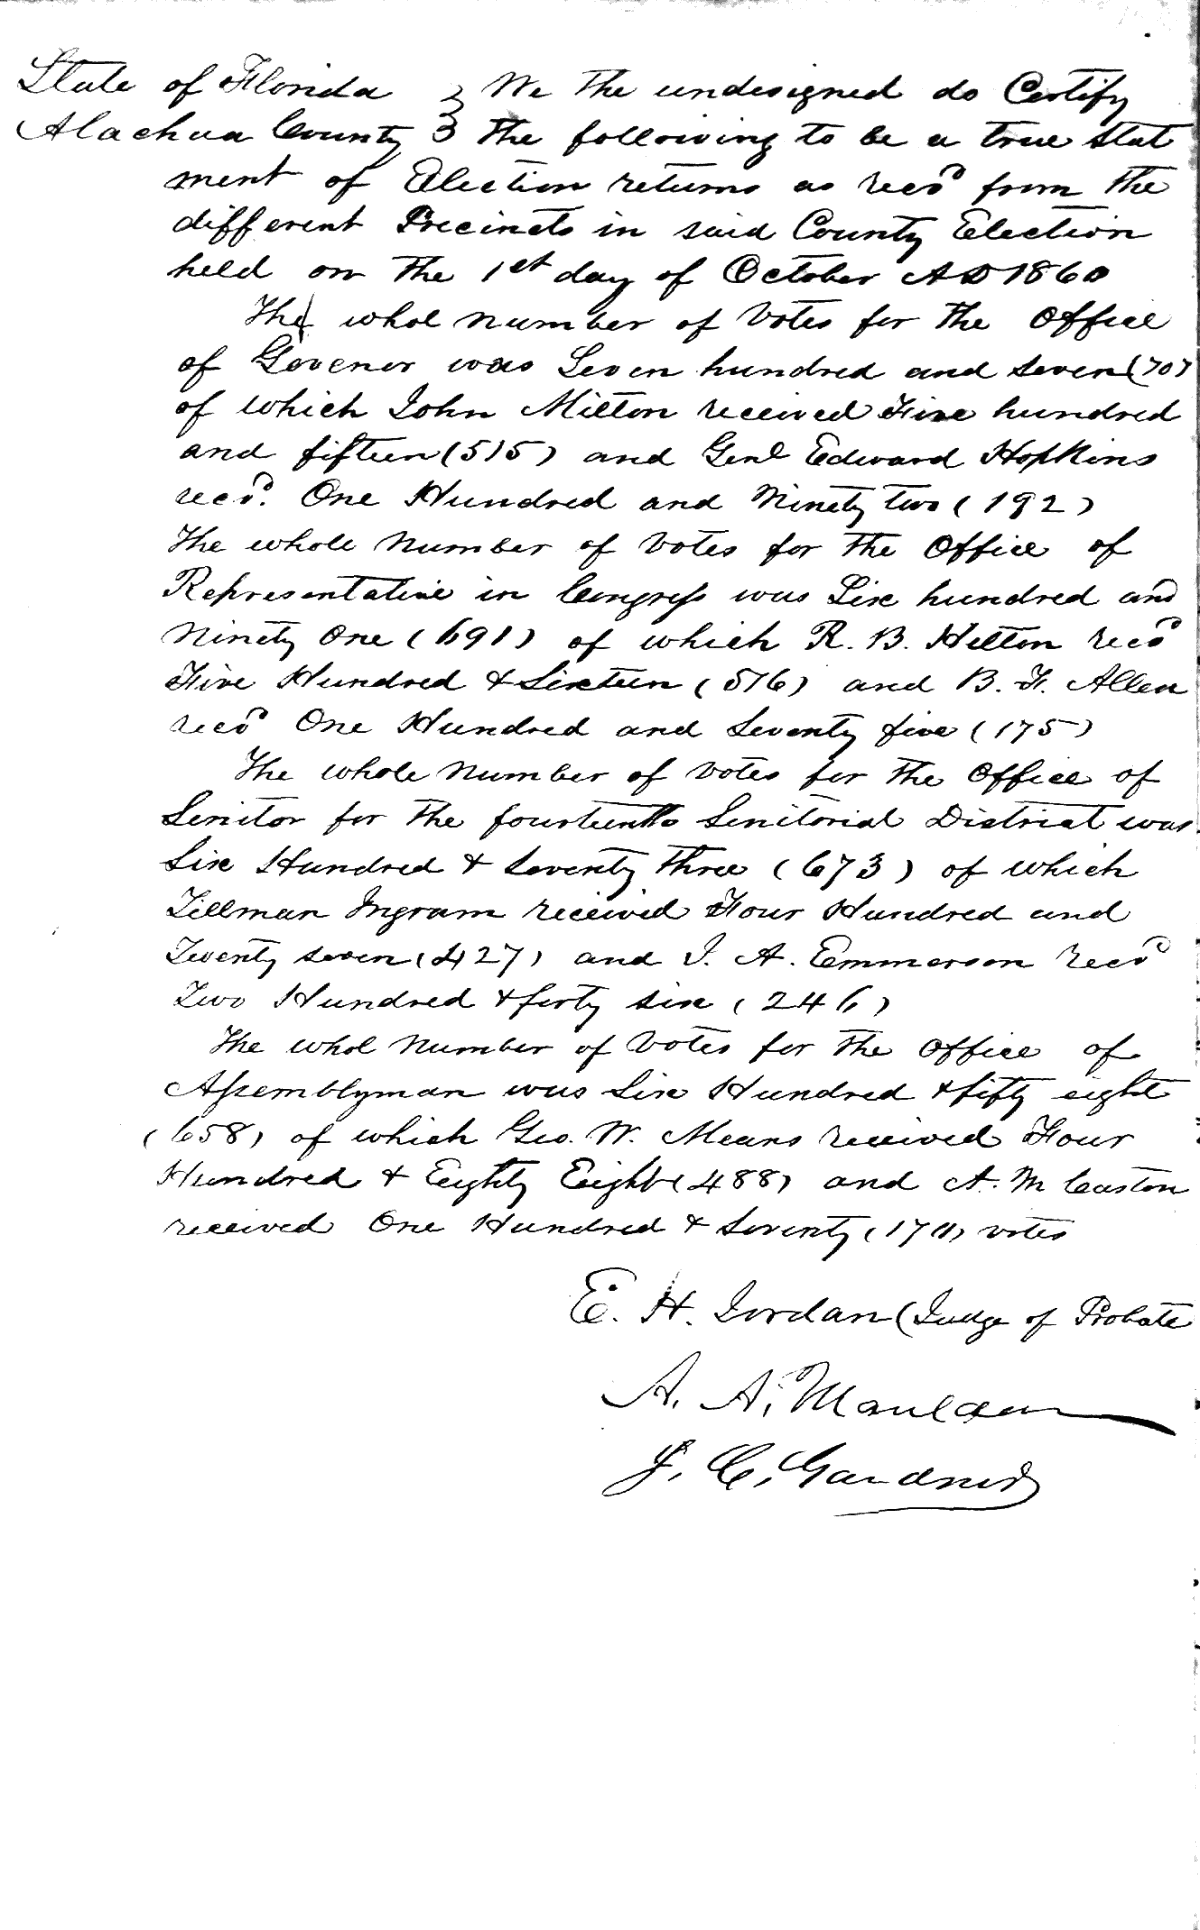 State of Florida } We the undesigned do Certify
Alachua County } the following to be a true Stat
ment of Election returns as recd from the
different Precincts in said County Election
held on the 1st day of October AD 1860
The whol number of votes for the Office
of Govenor was Seven hundred and seven (707)
of which John Milton received Five hundred
and fifteen (515) and Genl Edward Hopkins
recd. One Hundred and Ninety two (192)
The whole number of votes for the Office of
Representative in Congress was Six hundred and
Ninety One (691) of which R. B. Hilton recd
Five Hundred & Sixteen (516) and B. F. Allen
recd One Hundred and Seventy five (175)
The whole number of votes for the Office of
Senitor for the fourteenth Senitorial District was
Six Hundred & Seventy three (673) of which
Tillman Ingram received Four Hundred and
Twenty seven (427) and J. A. Emmerson recd
Two Hundred & forty six (246)
The whol number of votes for the Office of
Assemblyman was Six Hundred & fifty eight
(658) of which Geo. W. Means received Four
Hundred & Eighty Eight (488) and A. M Caston
received One Hundred & Seventy (170) votes
E. H. Jordan (Judge of Probate
A. A. Maulden
J. C. Gardner